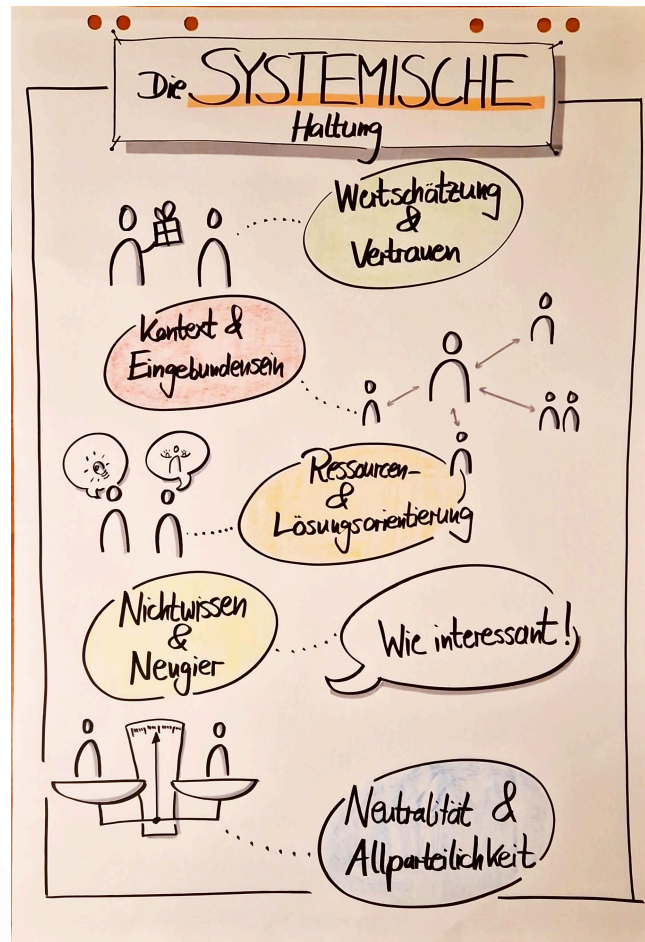 Die SYSTEMISCHE
Haltung
Wertschätzung
&
Vertrauen
Kontext &
Eingebundensein
Ressourcen-
&
Lösungsorientierung
Nichtwissen
&
Neugier
Wie interessant!
Neutralität &
Allparteilichkeit